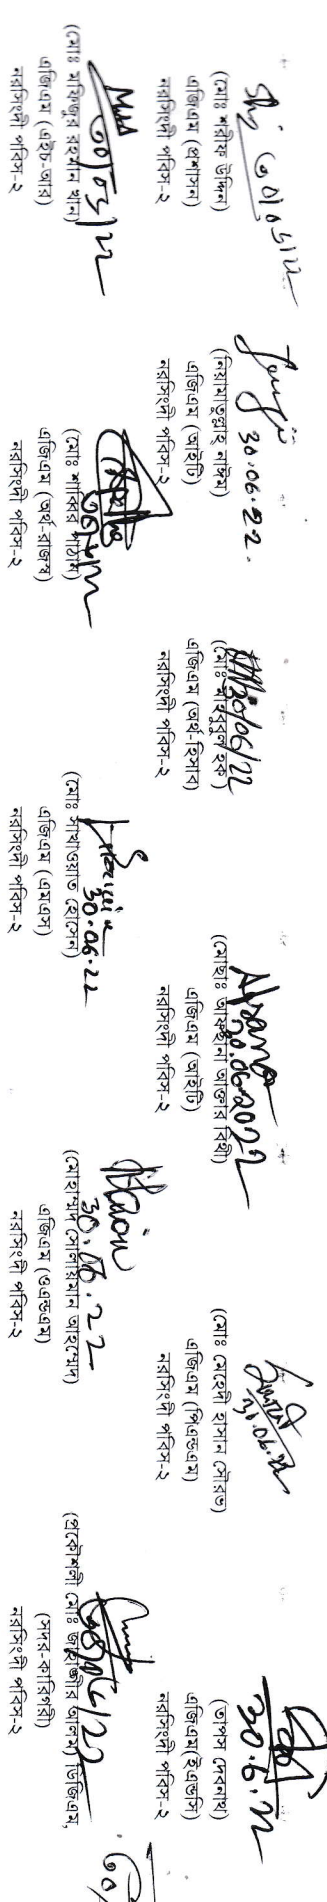 ৩০/০৬/২২
(মোঃ শরীফ উদ্দিন)
এজিএম (প্রশাসন)
নরসিংদী পবিস-২
30.06.22.
(নিয়ামতুল্লাহ নাঈম)
এজিএম (আইটি)
নরসিংদী পবিস-২
30/06/22
(মোঃ মাহবুবুল হক)
এজিএম (অর্থ-হিসাব)
নরসিংদী পবিস-২
Afsana
30.06.2022
(মোছাঃ আফছানা আক্তার বিথী)
এজিএম (আইটি)
নরসিংদী পবিস-২
30.06.22
(মোঃ মেহেদী হাসান সৌরভ)
এজিএম (পিএন্ডএম)
নরসিংদী পবিস-২
30.6.22
(তাপস দেবনাথ)
এজিএম(ইএন্ডসি)
নরসিংদী পবিস-২
৩০/০৬/২২
(মোঃ মফিজুর রহমান খান)
এজিএম (এইচ-আর)
নরসিংদী পবিস-২
(মোঃ শাব্বির পাঠান)
এজিএম (অর্থ-রাজস্ব)
নরসিংদী পবিস-২
30.06.22
(মোঃ সাখাওয়াত হোসেন)
এজিএম (এমএস)
নরসিংদী পবিস-২
30.06.22
(মোহাম্মদ সোলায়মান আহম্মেদ)
এজিএম (ওএন্ডএম)
নরসিংদী পবিস-২
(প্রকৌশলী মোঃ জাহাঙ্গীর আলম) ডিজিএম,
(সদর-কারিগরী)
নরসিংদী পবিস-২